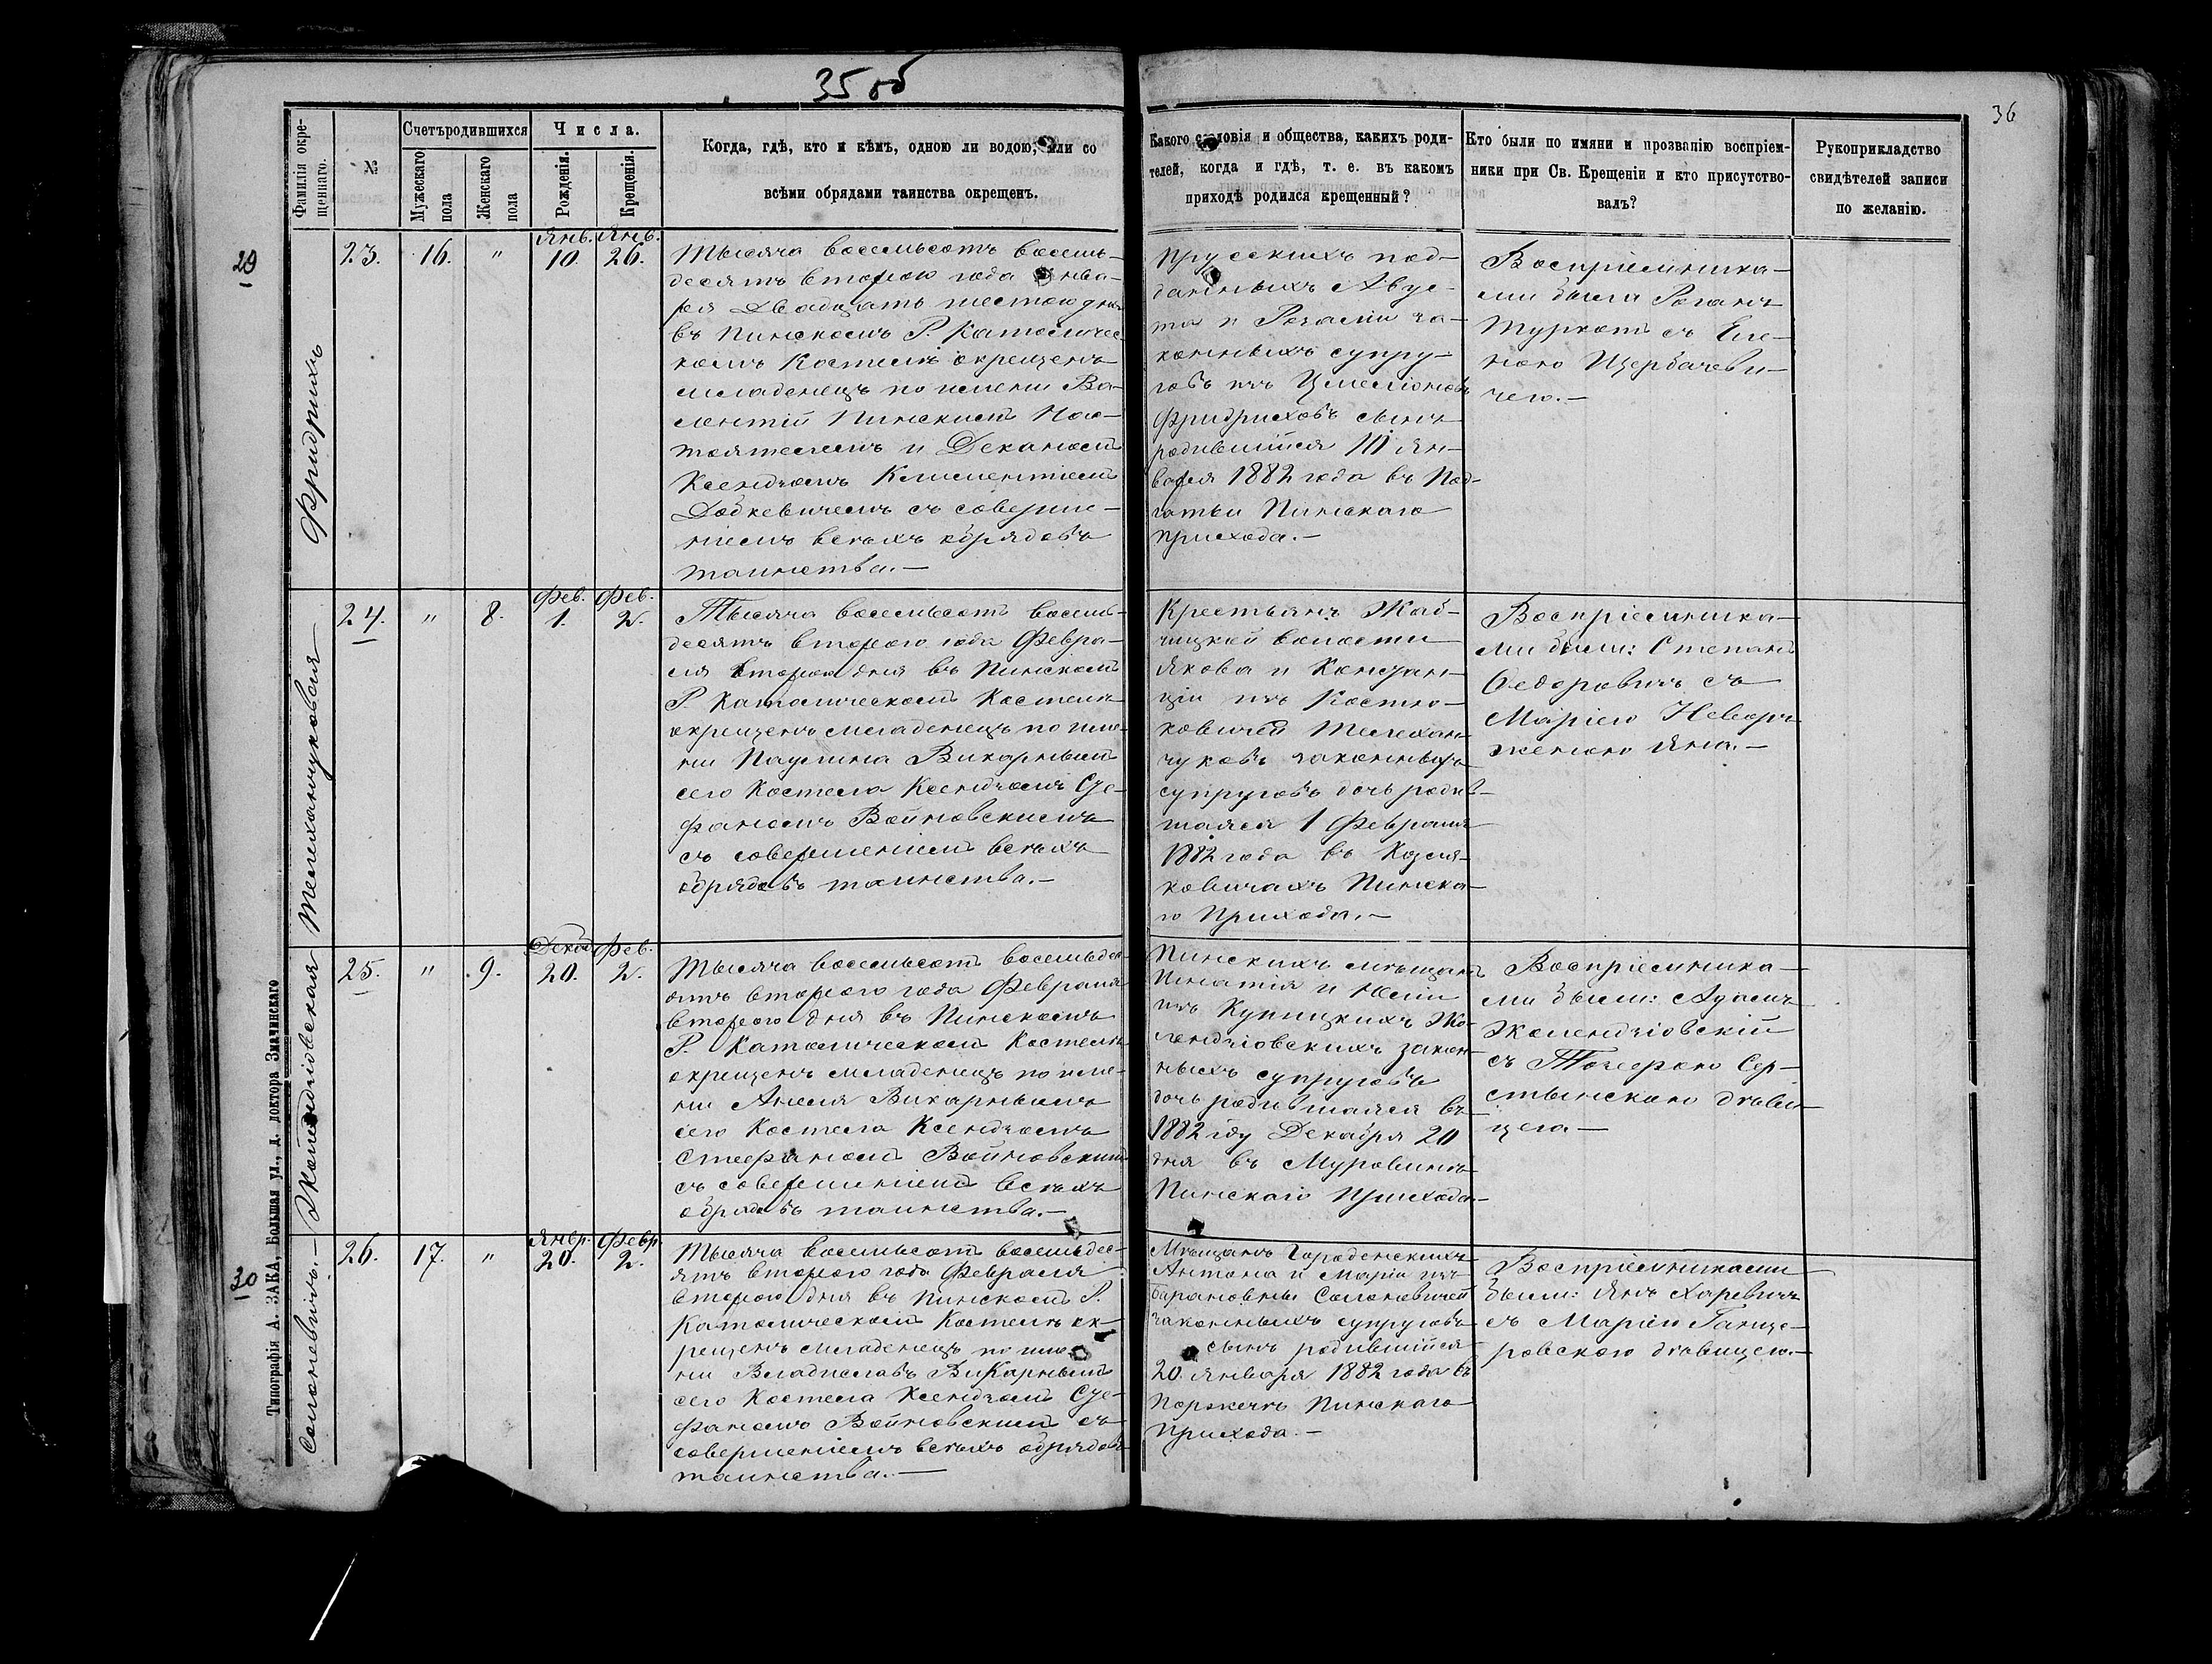 35 об
36
Фамилія окре-
щеннаго.
№
Счетъ родившихся
Мужескаго
пола
Женскаго
пола
Числа.
Рожденія.
Крещенія.
Когда, гдѣ, кто и кѣмъ, одною ли водою, или со
всѣми обрядами таинства окрещенъ.
Какого сословія и общества, какихъ роди-
телей, когда и гдѣ, т. е. въ какомъ
приходѣ родился крещенный?
Кто были по имяни и прозванію воспріем-
ники при Св. Крещеніи и кто присутство-
валъ?
Рукоприкладство
свидѣтелей записи
по желанію.
29
Фридрихъ
23.
16.
"
Янв.
10.
Янв.
26.
Тысяча восемьсотъ восемь-
десятъ второго года Янва-
ря двадцать шестого дня
въ Пинскомъ Р. Католичес-
комъ Костелѣ окрещенъ
младенецъ по имени Ва-
лентій Пинскимъ Нас-
тоятелемъ и Деканомъ
Ксендзомъ Климентіемъ
Добкевичемъ съ соверше-
ніемъ всѣхъ обрядовъ
таинства.—
Прусскихъ под-
данныхъ Авгус-
та и Розаліи за-
конныхъ супру-
говъ изъ
Фридриховъ сынъ
родившійся 10 Ян-
варя 1882 года въ Под-
гатьи Пинскаго
прихода.—
Воспріемника-
ми были Романъ
Туркотъ съ Еле-
ною Щербачеви-
чего.—
Телеханчуковская
24.
"
8.
Фев.
1.
Фев.
2.
Тысяча восемьсотъ восемь-
десятъ второго года Февра-
ля второго дня въ Пинскомъ
Р. Католическомъ Костелѣ
окрещенъ младенецъ по име-
ни Паулина Викарнымъ
сего Костела Ксендзомъ Сте-
фаномъ Войновскимъ
съ совершеніемъ всѣхъ
обрядовъ таинства.—
Крестьянъ Жаб-
чицкой волости
Якова и Констан-
ціи изъ Костю-
ковичей Телехан-
чуковъ законныхъ
супруговъ дочь родив-
шаяся 1 Февраля
1882 года въ Козля-
ковичахъ Пинска-
го Прихода.—
Воспріемника-
ми были: Степанъ
Ѳедоровичъ съ
Маріею
женою Яна.—
Жолендзіовская
25.
"
9.
Декаб.
20.
Фев.
2.
Тысяча восемьсотъ восемьдес-
ятъ второго года Февраля
второго дня въ Пинскомъ
Р. Католическомъ Костелѣ
окрещенъ младенецъ по име-
ни Анеля Викарнымъ
сего Костела Ксендзомъ
Стефаномъ Войновскимъ
съ совершеніемъ всѣхъ
обрядовъ таинства.—
Пинскихъ мѣщанъ
Игнатія и Юліи
изъ Купицкихъ Жо-
лендзіовскихъ закон-
ныхъ супруговъ
дочь родившаяся въ
1882 году Декабря 20
дня въ Муровинѣ
Пинскаго Прихода.—
Воспріемника-
ми были: Адамъ
Жолендзіовскій
съ Теофилею Сер-
стынскою дѣви-
цею—
30
Солоневичъ.—
26.
17.
"
Янвр.
20.
Февр.
2.
Тысяча восемьсотъ восемьдес-
ятъ второго года Февраля
второго дня въ Пинскомъ Р.
Католическомъ Костелѣ ок-
рещенъ младенецъ по име-
ни Владиславъ Викарнымъ
сего Костела Ксендзомъ Сте-
фаномъ Войновскимъ съ
совершеніемъ всѣхъ обрядовъ
таинства.—
Мѣщанъ Гароденскихъ
Антона и Маріи изъ
Барановны Солоневичей
законныхъ супруговъ
сынъ родившійся
20 Января 1882 года въ
Поржечѣ Пинскаго
прихода.—
Воспріемниками
были: Янъ Харевичъ
съ Маріею Ганце-
ровскою дѣвицею.—
Типографія А. ЗАКА, Большая ул., д. доктора Знаминскаго